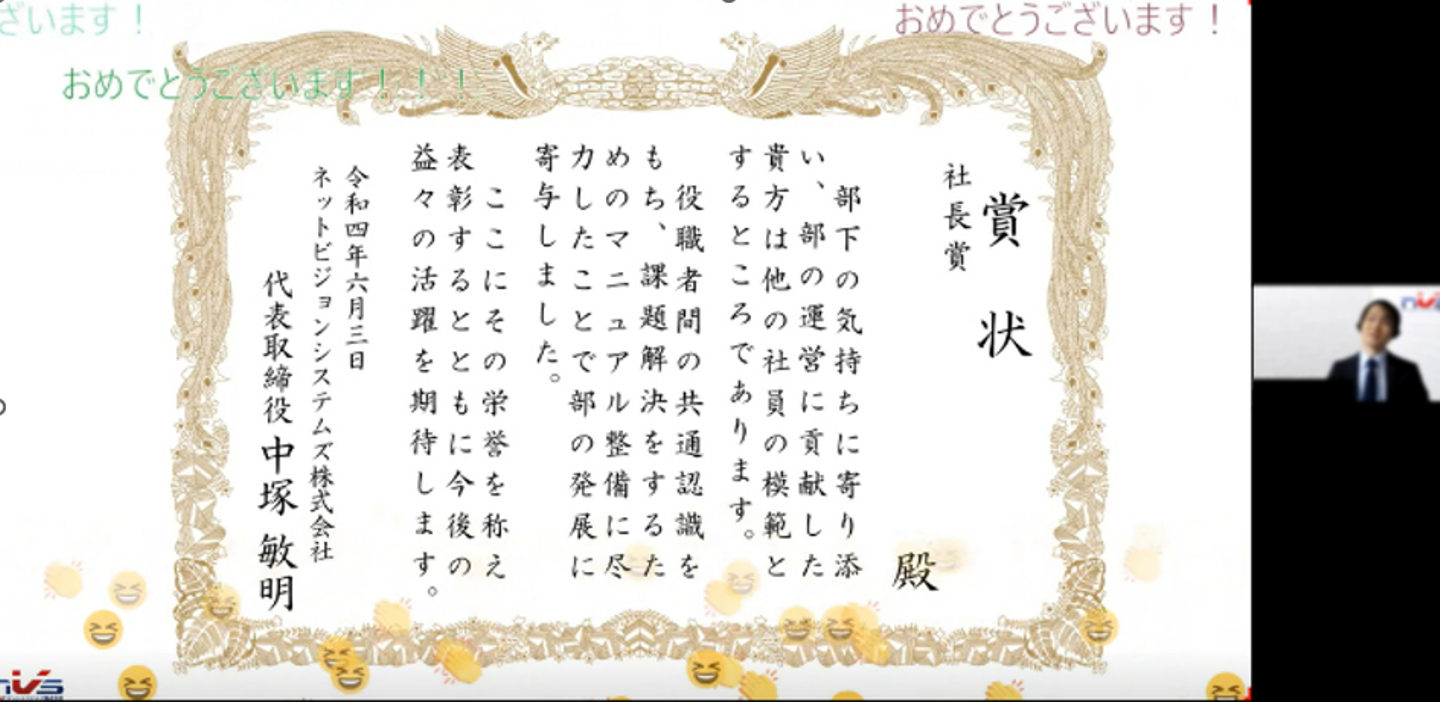 ざいます！
おめでとうございます！
おめでとうございます！！！
賞状
社長賞
殿
部下の気持ちに寄り添
い、部の運営に貢献した
貴方は他の社員の模範と
するところであります。
役職者間の共通認識を
もち、課題解決をするた
めのマニュアル整備に尽
力したことで部の発展に
寄与しました。
ここにその栄誉を称え
表彰するとともに今後の
益々の活躍を期待します。
令和四年六月三日
ネットビジョンシステムズ株式会社
代表取締役 中塚 敏明
nVS
nVS